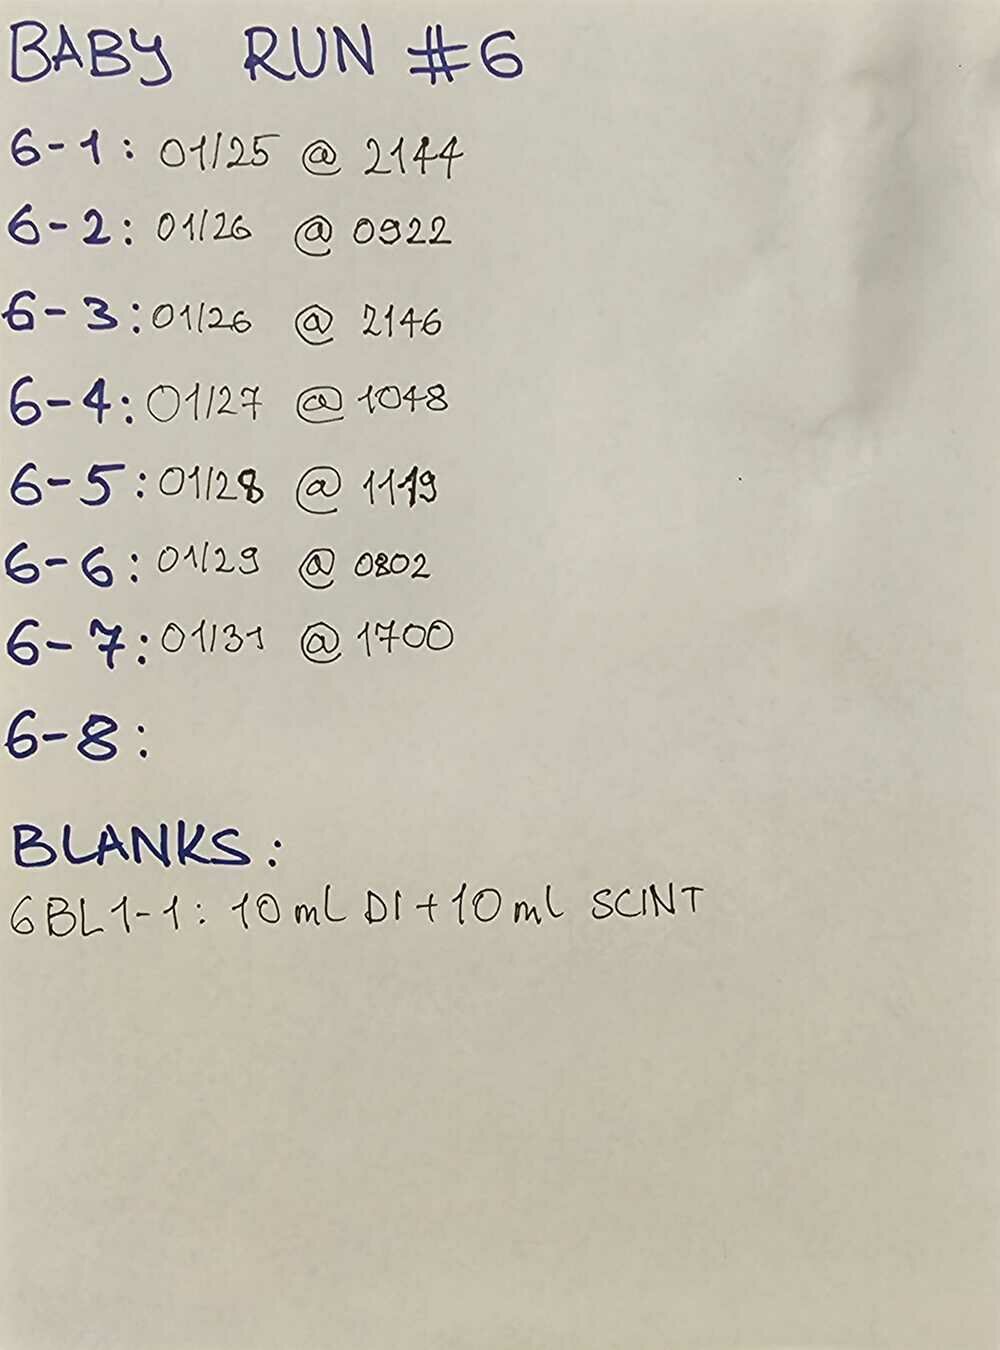 BABY RUN #6
6-1: 01/25 @ 2144
6-2: 01/26 @ 0922
6-3: 01/26 @ 2146
6-4: 01/27 @ 1048
6-5: 01/28 @ 1119
6-6: 01/29 @ 0802
6-7: 01/31 @ 1700
6-8:
BLANKS:
6BL1-1: 10 mL DI + 10 mL SCINT